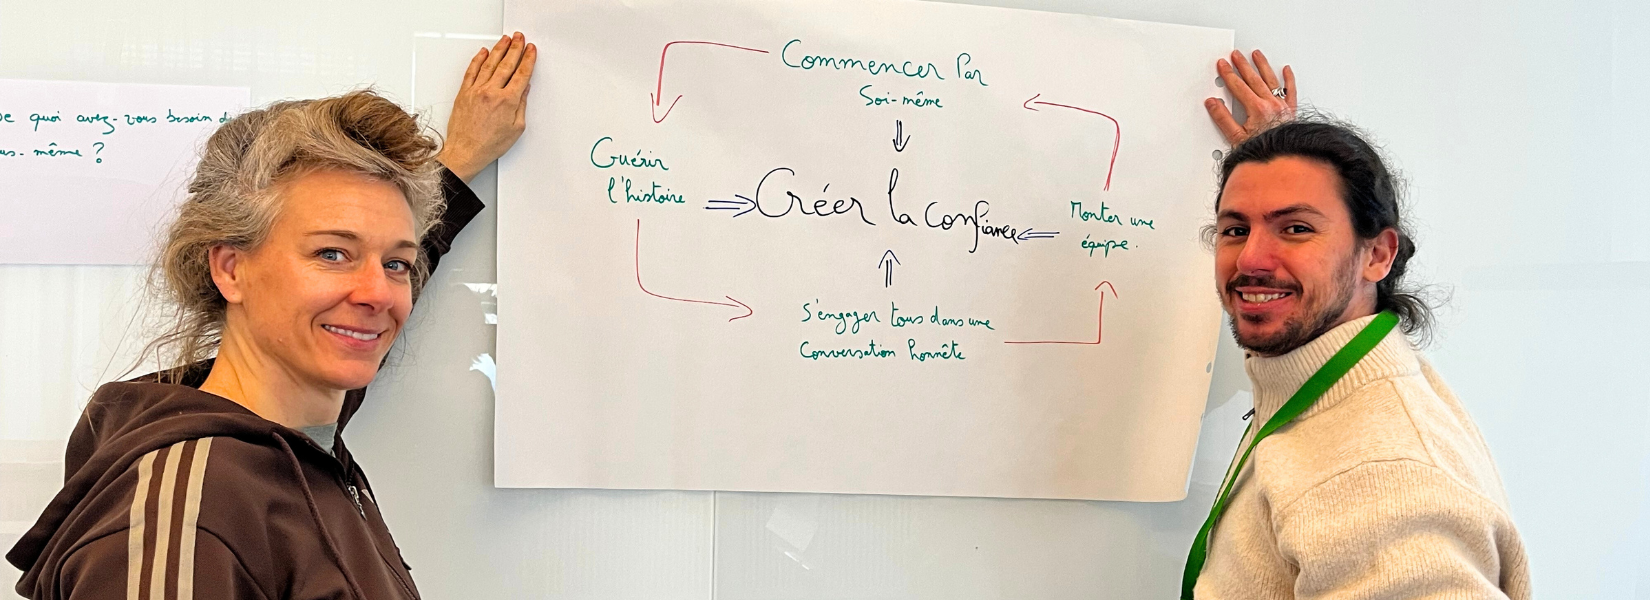 quoi avez-vous besoin
même ?
Commencer Par
Soi-même
Guérir
l'histoire
Créer la confiance
Monter une
équipe.
S'engager tous dans une
Conversation honnête